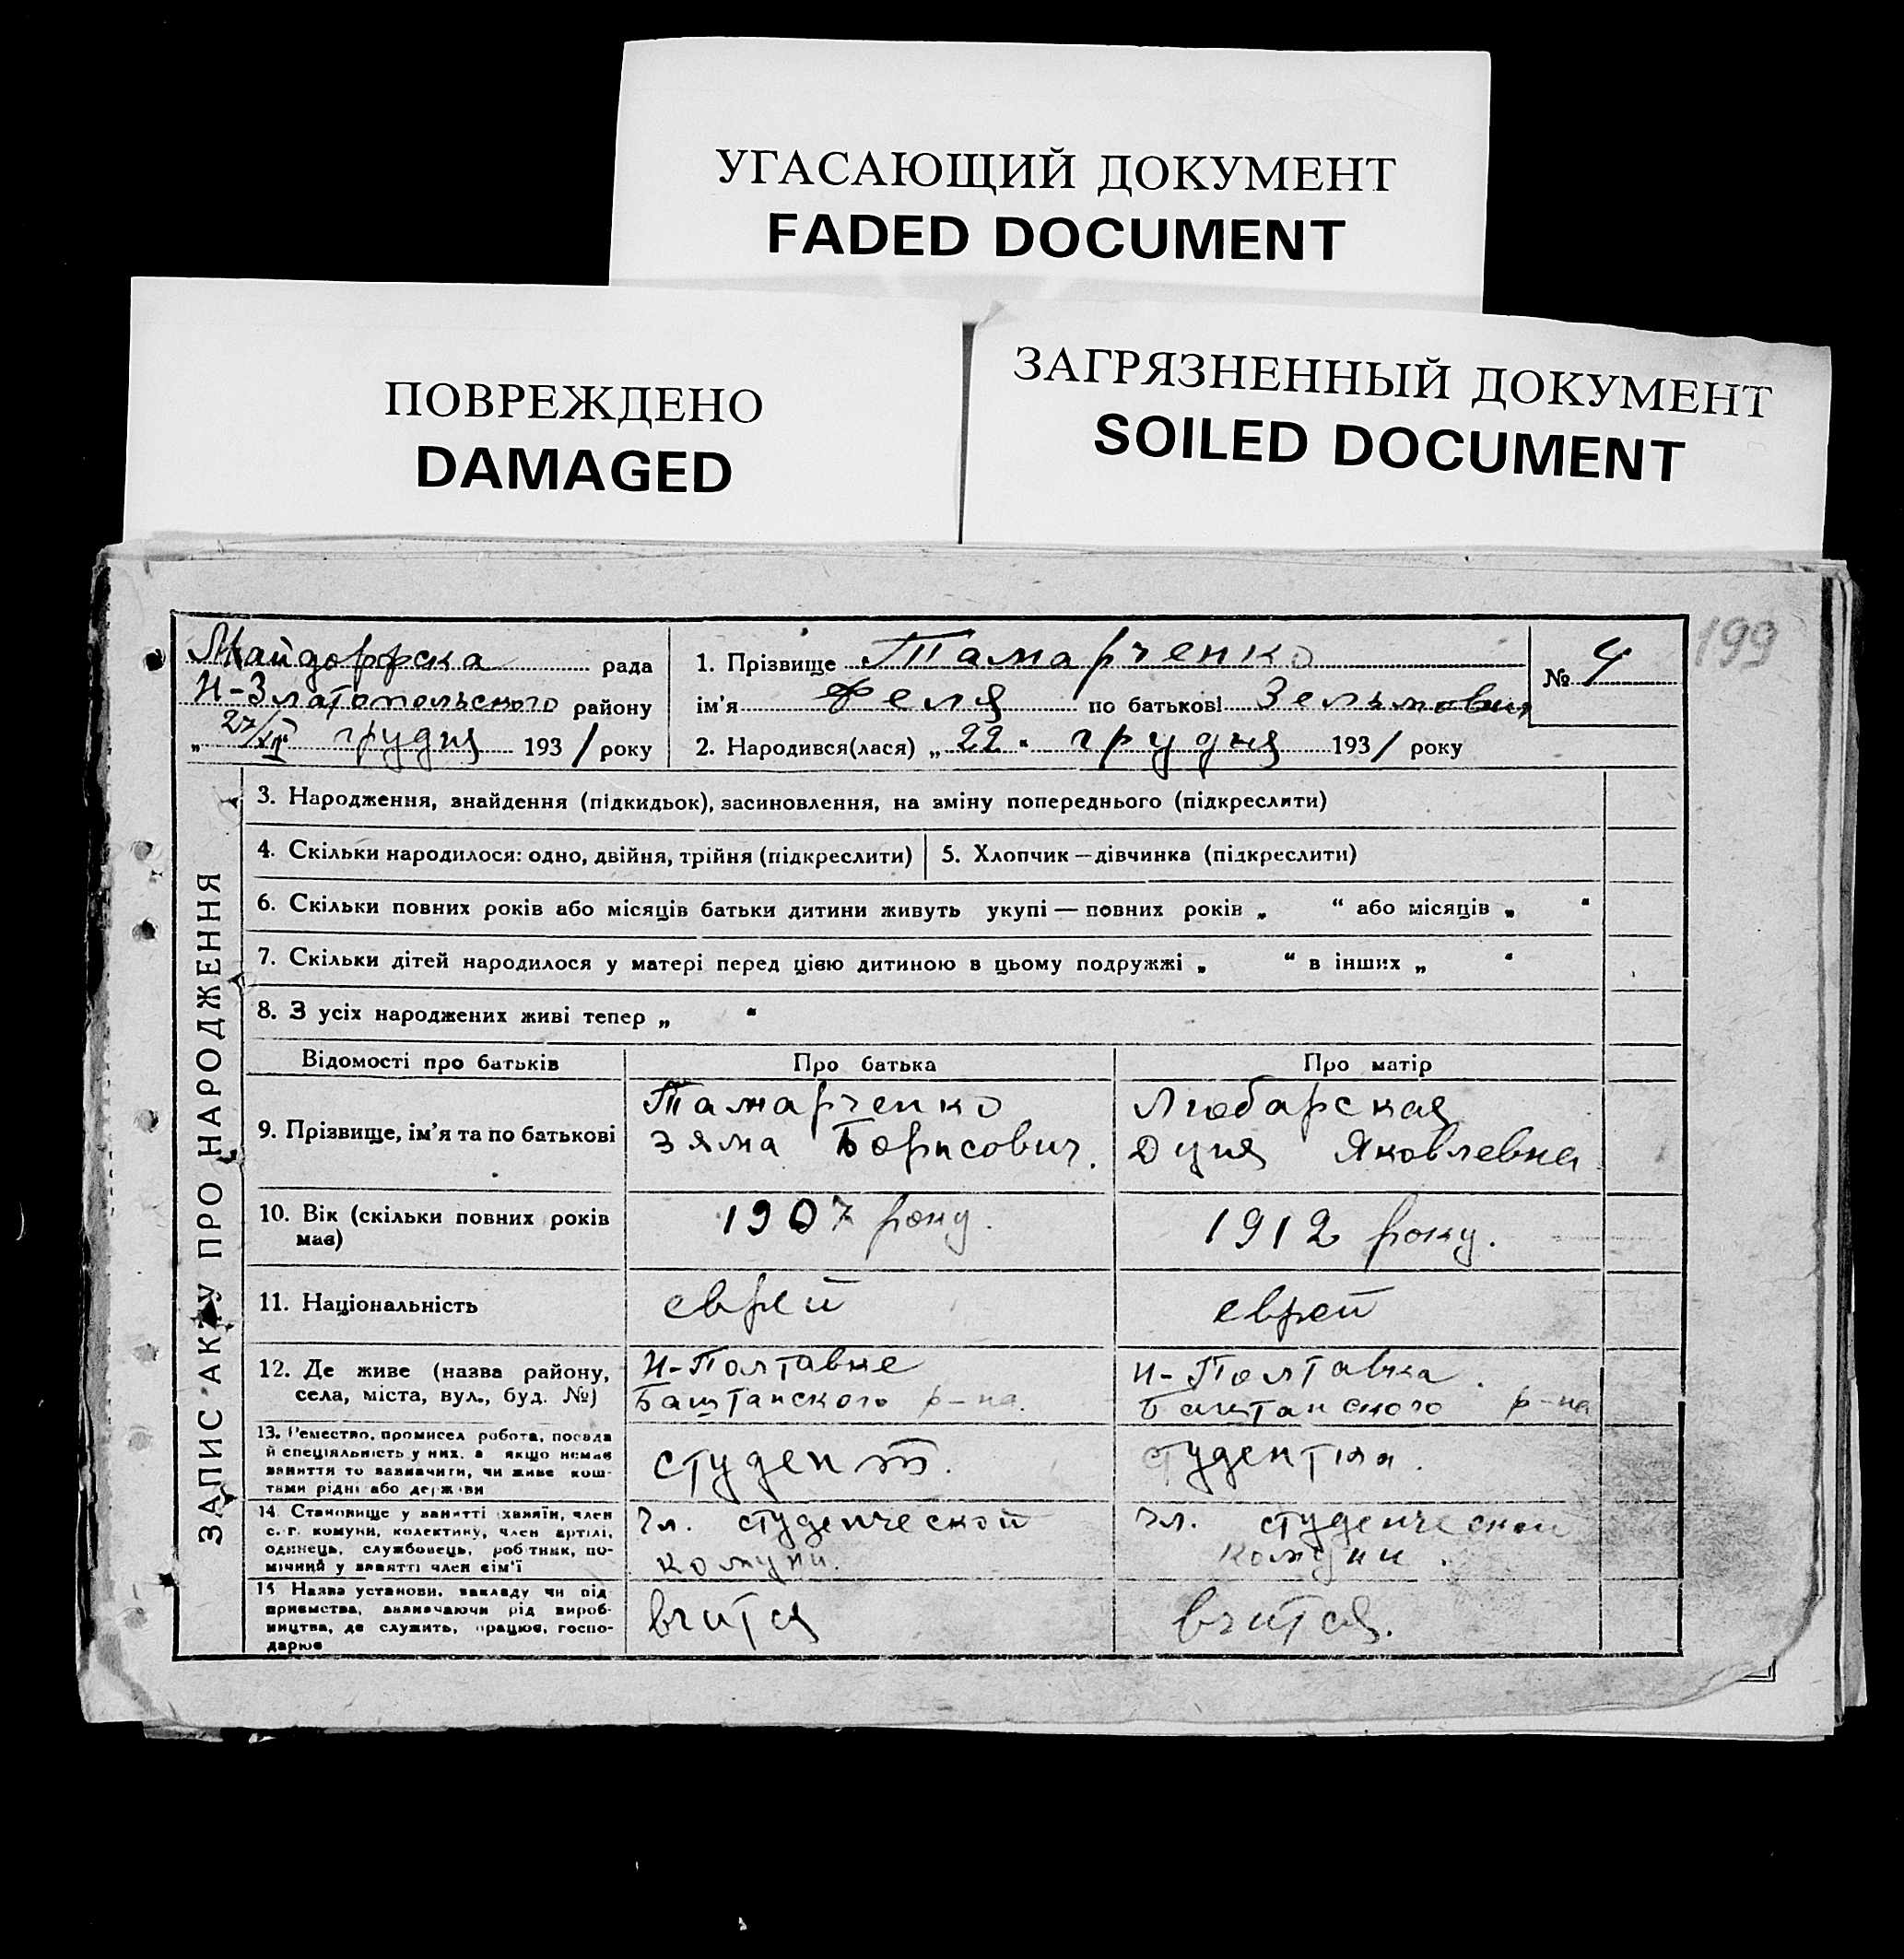 УГАСАЮЩИЙ ДОКУМЕНТ
FADED DOCUMENT
ПОВРЕЖДЕНО
DAMAGED
ЗАГРЯЗНЕННЫЙ ДОКУМЕНТ
SOILED DOCUMENT
199
Майдорфска рада
Н-Златопольского району
„ 27/XII грудня 1931 року
1. Прізвище Тамарченко
ім'я Феля по батькові
2. Народився(лася) „ 22 " грудня 1931 року
№ 4
ЗАПИС АКТУ ПРО НАРОДЖЕННЯ
3. Народження, знайдення (підкидьок), засиновлення, на зміну попереднього (підкреслити)
4. Скільки народилося: одно, двійня, трійня (підкреслити)
5. Хлопчик — дівчинка (підкреслити)
6. Скільки повних років або місяців батьки дитини живуть укупі — повних років „ “ або місяців „ “
7. Скільки дітей народилося у матері перед цією дитиною в цьому подружжі „ “ в інших „ “
8. З усіх народжених живі тепер „ “
Відомості про батьків
Про батька
Про матір
9. Прізвище, ім'я та по батькові
Тамарченко
Зяма Борисович.
Любарская
Дуня Яковлевна
10. Вік (скільки повних років
має)
1907 року.
1912 року.
11. Національність
еврей
еврей
12. Де живе (назва району,
села, міста, вул., буд. №)
Н-Полтавке
Баштанского р-на.
Н-Полтавка.
Баштанского р-на
13. Ремество, промисел робота, посада
й спеціяльність у них, а якщо немає
заняття то зазначити, чи живе кош-
тами рідні або держави
студент.
студентка.
14. Становище у занятті (хазяїн, член
с.-г. комуни, колективу, член артілі,
одинець, службовець, робітник, по-
мічний у занятті член сім'ї
Чл. студенческой
комуни.
Чл. студенческой
комуни.
15 Назва установи, закладу чи під-
приємства, зазначаючи рід вироб-
ництва, де служить, працює, госпо-
дарює
вчится
вчится.